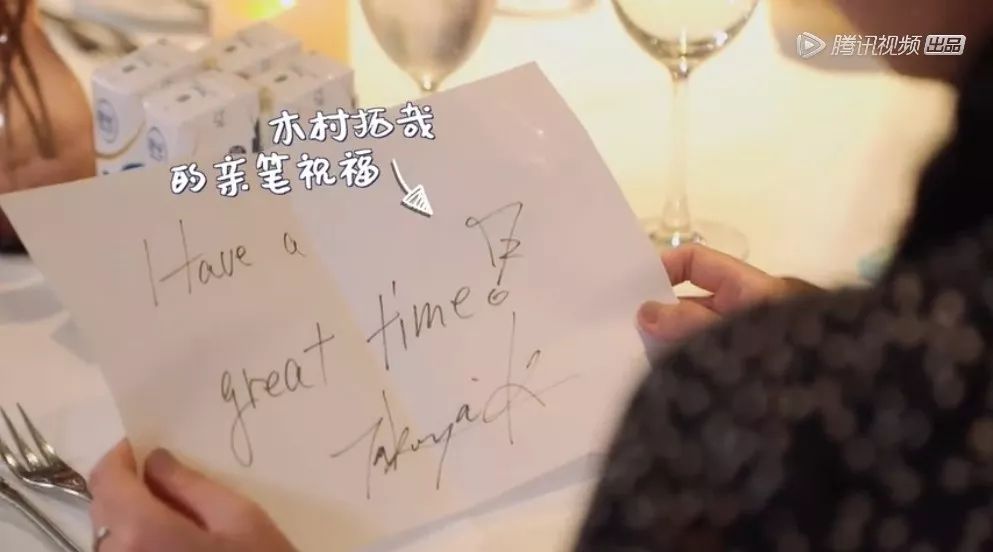 腾讯视频 出品
木村拓哉
的亲笔祝福
Have a
great time!
Takuya K